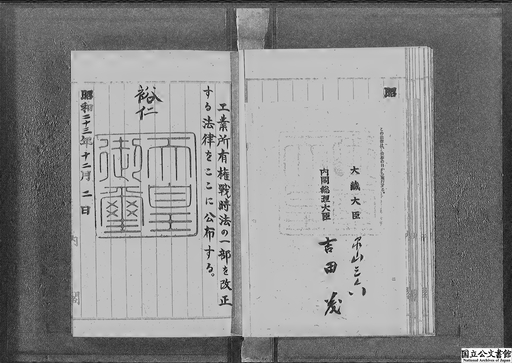 工業所有権戦時法の一部を改正
する法律をここに公布する。
裕仁
天皇
御璽
昭和二十三年十二月二日
内閣
大蔵大臣
内閣総理大臣
吉田茂
国立公文書館
National Archives of Japan